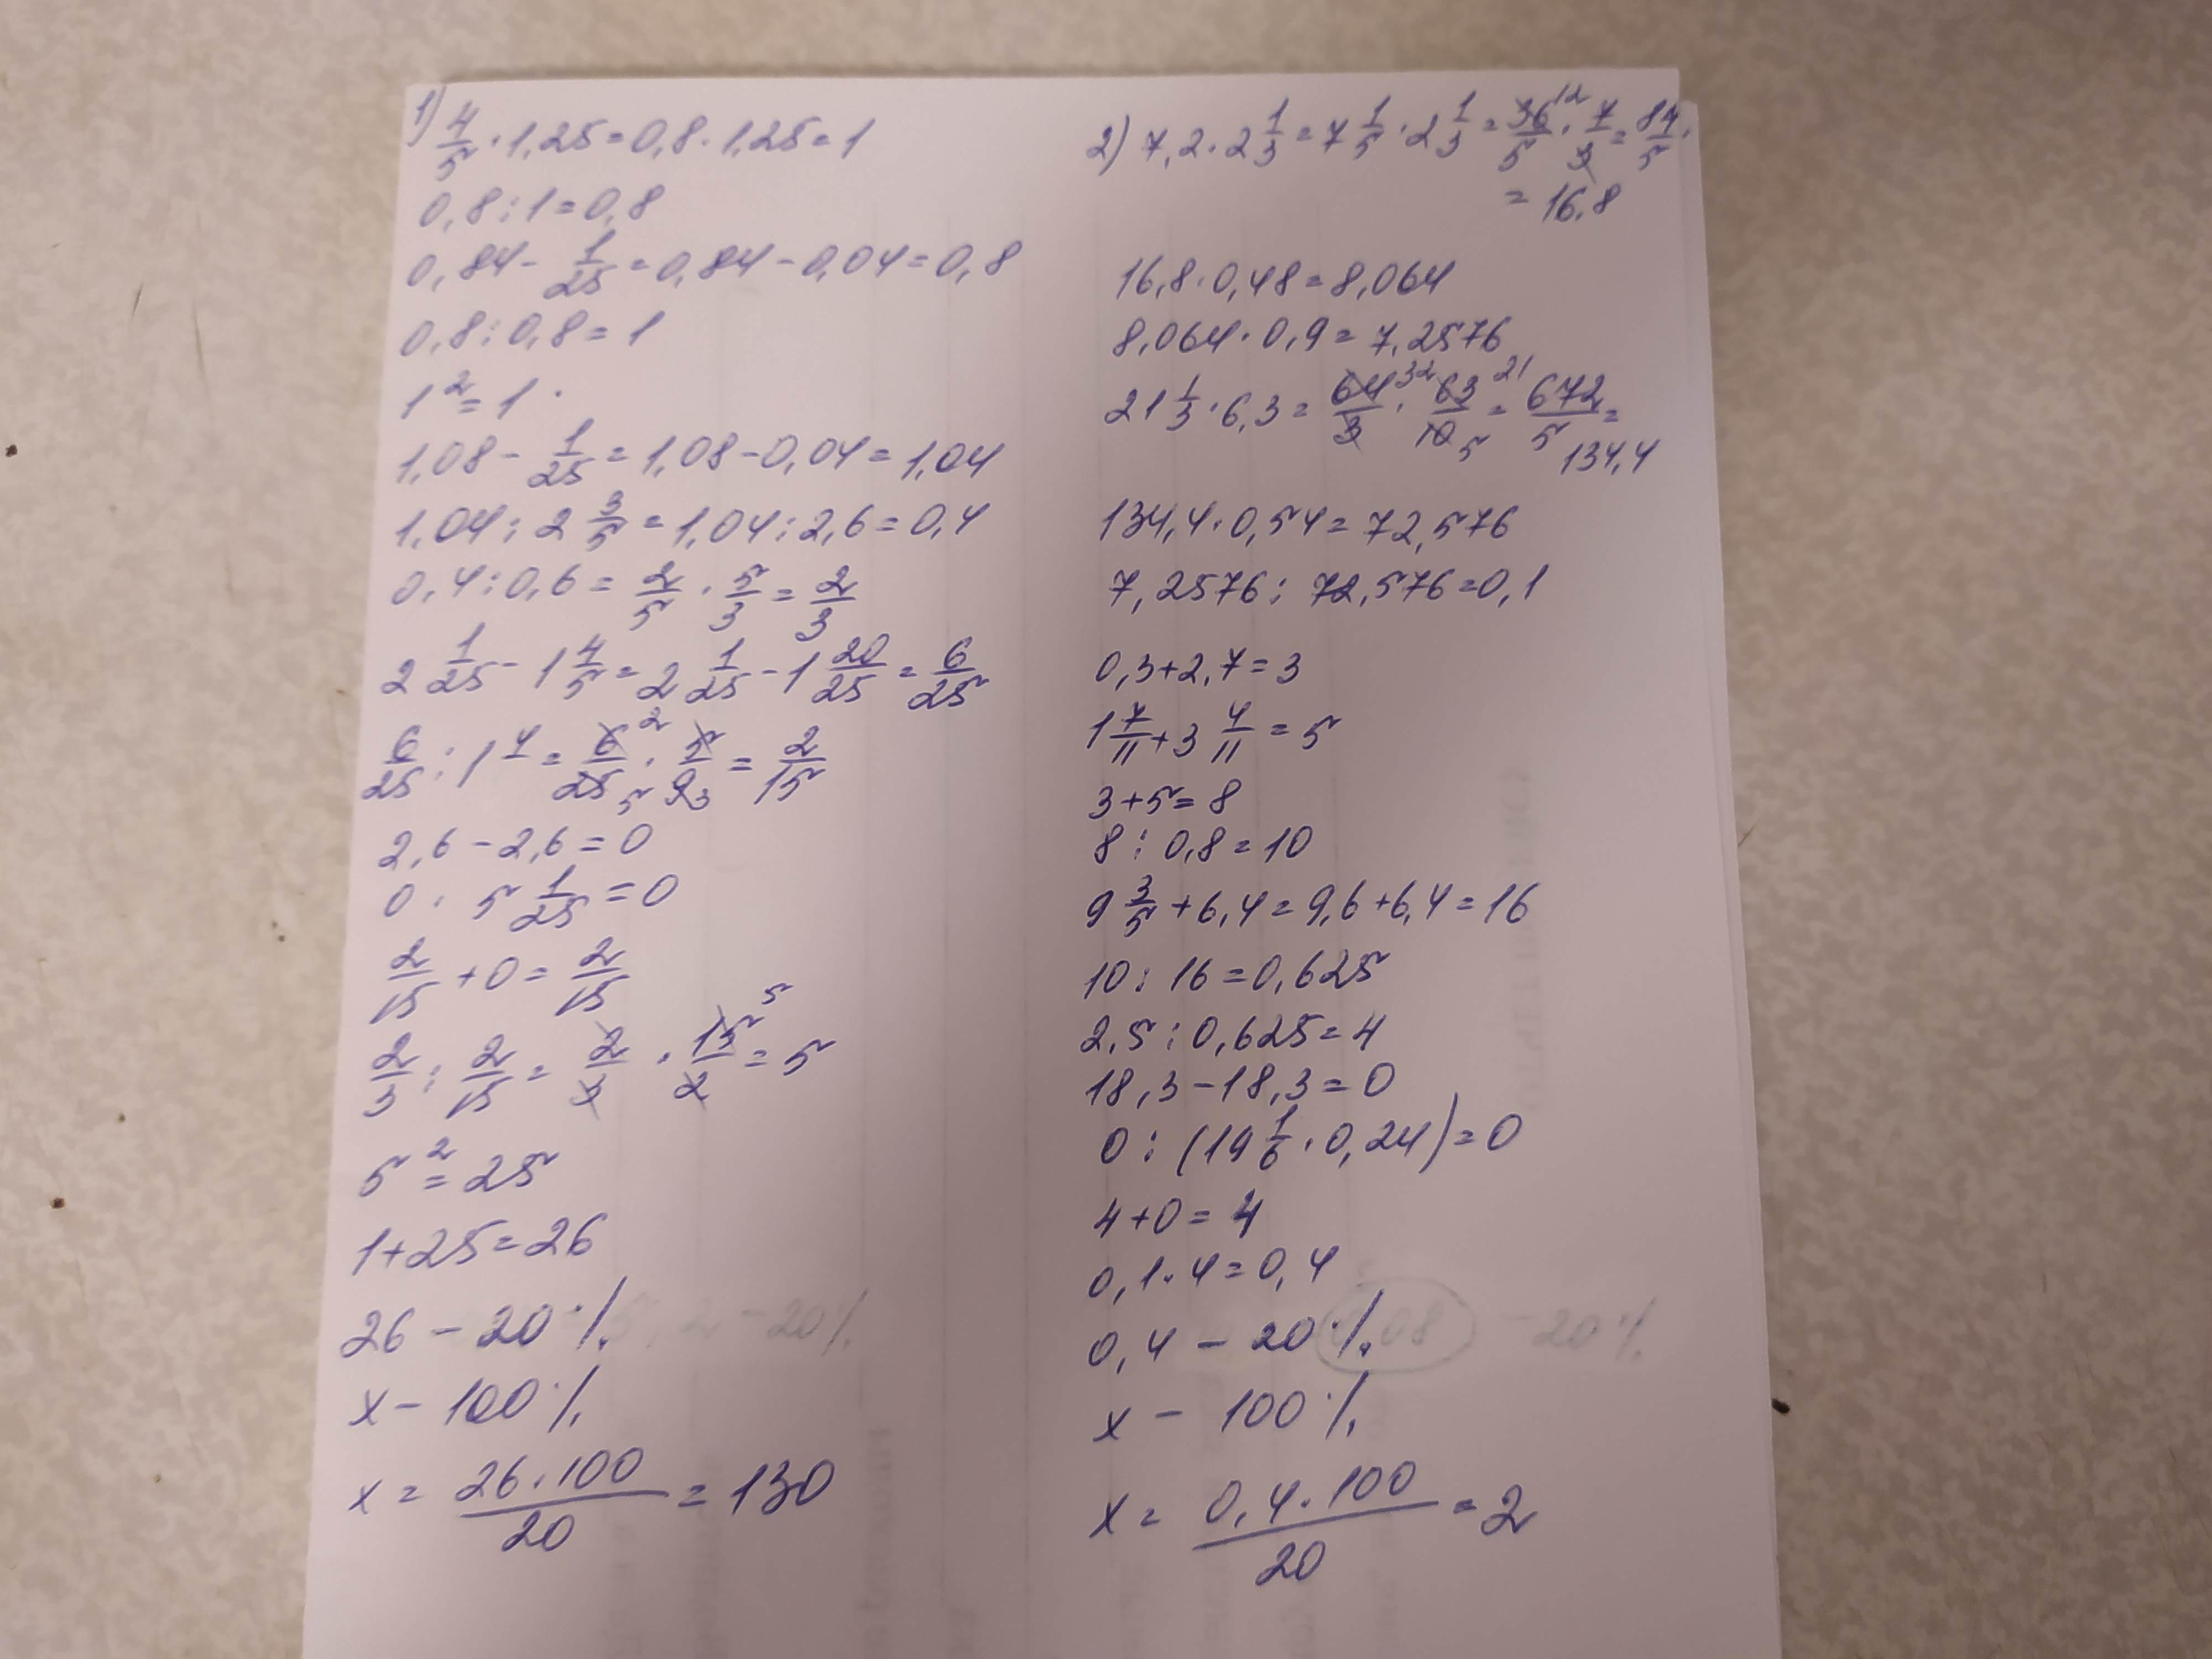 1) 4/5 · 1,25 = 0,8 · 1,25 = 1
0,8 : 1 = 0,8
0,84 - 1/25 = 0,84 - 0,04 = 0,8
0,8 : 0,8 = 1
1² = 1
1,08 - 1/25 = 1,08 - 0,04 = 1,04
1,04 : 2 3/5 = 1,04 : 2,6 = 0,4
0,4 : 0,6 = 2/5 · 5/3 = 2/3
2 1/25 - 1 4/5 = 2 1/25 - 1 20/25 = 6/25
6/25 : 1 4/ = 6 2/25 5 · 5/9 3 = 2/15
2,6 - 2,6 = 0
0 · 5 1/25 = 0
2/15 + 0 = 2/15
2/3 : 2/15 = 2/3 · 15 5/2 = 5
5² = 25
1 + 25 = 26
26 - 20%
x - 100%
x = 26 · 100/20 = 130
2) 7,2 · 2 1/3 = 7 1/5 · 2 1/3 = 36 12/5 · 7/3 = 84/5 ·
= 16,8
16,8 · 0,48 = 8,064
8,064 · 0,9 = 7,2576
21 1/3 · 6,3 = 64 32/3 · 63 21/10 5 = 672/5 =
134,4
134,4 · 0,54 = 72,576
7,2576 : 72,576 = 0,1
0,3 + 2,7 = 3
1 7/11 + 3 4/11 = 5
3 + 5 = 8
8 : 0,8 = 10
9 3/5 + 6,4 = 9,6 + 6,4 = 16
10 : 16 = 0,625
2,5 : 0,625 = 4
18,3 - 18,3 = 0
0 : (19 1/6 · 0,24) = 0
4 + 0 = 4
0,1 · 4 = 0,4
0,4 - 20%
x - 100%
x = 0,4 · 100/20 = 2